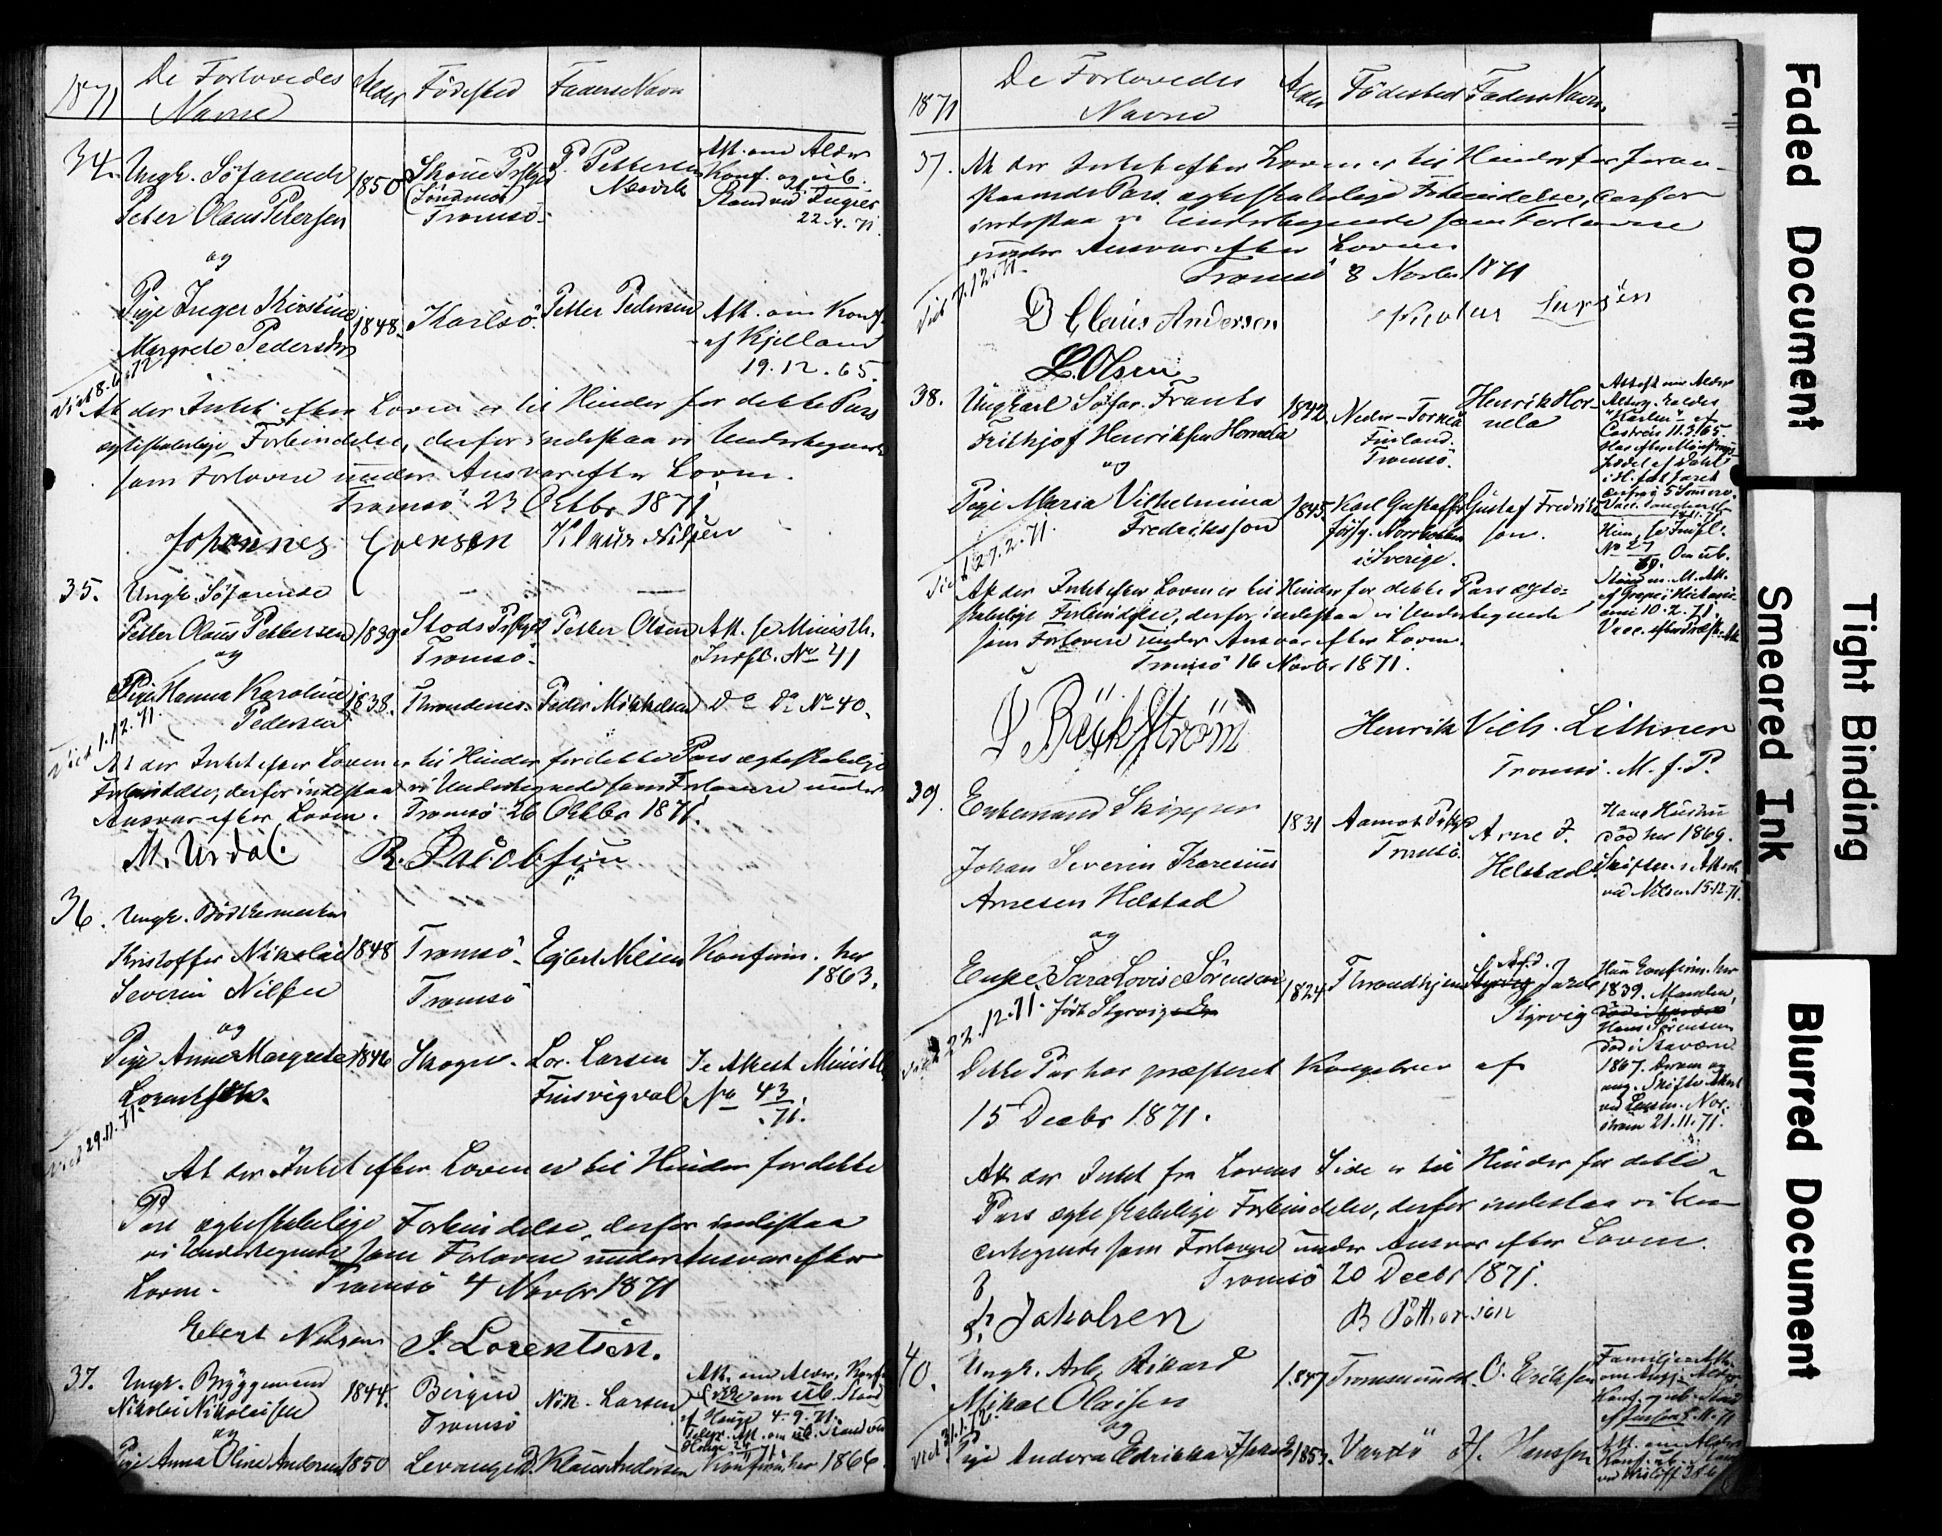 1871
De Forlovedes
Navne
Alder
Fødested
Faders Navn
34.
Ungk. Søfarende
Peter Olaus Petersen
1850
(Søndmør)
Tromsø.
P. Pettersen
Att. om Alder
Konf. og ub.
Stand ved
22.4.71.
og
Pige Inger Kirstine
Margrete Pedersen
1848.
Karlsø.
Petter Pedersen
Att. om Konf.
af Kjelland
19.12.65.
At der Intet efter Loven er til Hinder for dette Pars
ægteskabelige Forbindelse, derfor indestaa vi Undertegnede
som Forlovere under Ansvar efter Loven.
Tromsø 23 Octbr 1871
Johannes Evensen Klaus Nilsen
35.
Ungk. Søfarende
Petter Olaus Pettersen
1839
Stods Prstgd
Tromsø.
Petter Olsen
Att. se Ministb.
Indfl. No 41
og
Pige Hanna Karoline
Pedersen
1838.
Throndenes
Peder Mikkelsen
Do Do No 40.
Viet 1.12.71.
At der Intet efter Loven er til Hinder for dette Pars ægteskabelige
Forbindelse, derfor indestaa vi Undertegnede som Forlovere under
Ansvar efter Loven. Tromsø 26 Oktbr 1871.
M. Urdal. R. Jacobsen
36.
Ungk. Bødkermester
Kristoffer Nikolai
Severin Nilsen
1848
Tromsø
Tromsø
Egbert Nilsen
Konfirm. her
1863.
og
Pige Anne Margrete
Lorentsen.
1846
Skogn.
Lor. Larsen
Finsvigval
Se Attest Ministb.
No 43
71.
Viet 29.11.71.
At der Intet efter Loven er til Hinder for dette
Pars ægteskabelige Forbindelse, derfor indestaa
vi Undertegnede som Forlovere under Ansvar efter
Loven. Tromsø 4 Novbr 1871
Ebert Nilsen J. Lorentsen.
37.
Ungk. Bryggemand
Nikolai Nikolaisen
1844.
Bergen
Tromsø
Nik. Larsen
Att. om Alder, Konf.
om ub. Stand
af Hauge 4.9.71.
og
Pige Anna Oline Andersen
1850
Levanger
Klaus Andersen
Konfirm. her 1866.
1871
De Forlovedes
Navne
Alder
Fødested
Faders Navn
37.
At der Intet efter Loven er til Hinder for foran-
staaende Pars ægteskabelige Forbindelse, derfor
indestaa vi Undertegnede som Forlovere
under Ansvar efter Loven
Tromsø 8 Novbr 1871
Viet 7.12.71.
D Claus Andersen
L. Olsen
38.
Ungkarl Søfar. Frants
Frithjof Henriksen Hornela
1842
Neder-Torneå
Finland.
Tromsø.
Henrik Hor-
nela
Attest om Alder
og
Pige Maria Vilhelmina
Fredriksson
1845.
Karl Gustaffs
førsg. Norrbotten
i Sverige.
Gustaf Fredriks
son.
No 27
Om ub.
Stand
10.2.71.
At der Intet efter Loven er til Hinder for dette Pars ægte-
skabelige Forbindelse, derfor indestaa vi Undertegnede
som Forlovere under Ansvar efter Loven.
Tromsø 16 Novbr 1871.
Bäckström
Henrik Vilh. Lithner
Tromsø. M. f. P.
39.
Enkemand Skipper
Johan Severin Karesius
Arnesen Helstad
1831
Aamot Prstgd
Tromsø.
Arne J.
Helstad
Hans Hustru
død her 1869.
Skifte Attest
ved Nilsen 15.12.71.
og
Enke Sara Lovise Sørensen
født Styrvig
1824
Throndhjem
Styrvig
Hun konfirm. her
1839. Manden
Hans Sørensen
død i
1867.
21.11.71.
Viet 22.12.71.
Dette Par har præsteret Kongebrev af
15 Decbr 1871.
At der Intet fra Lovens Side er til Hinder for dette
Pars ægteskabelige Forbindelse, derfor indestaa vi Un-
dertegnede som Forlovere under Ansvar efter Loven.
Tromsø 20 Decbr 1871.
Jakobsen
B Pettersen
40.
Ungk. Arb. Rikard
Mikal Olaisen
1847
Tromsøsund
O. Eriksen
og
Pige Andora Edrikka
1853.
Vardø
H. Hanssen
Att. om Alder
Konf.
Faded Document
Tight Binding
Smeared Ink
Blurred Document